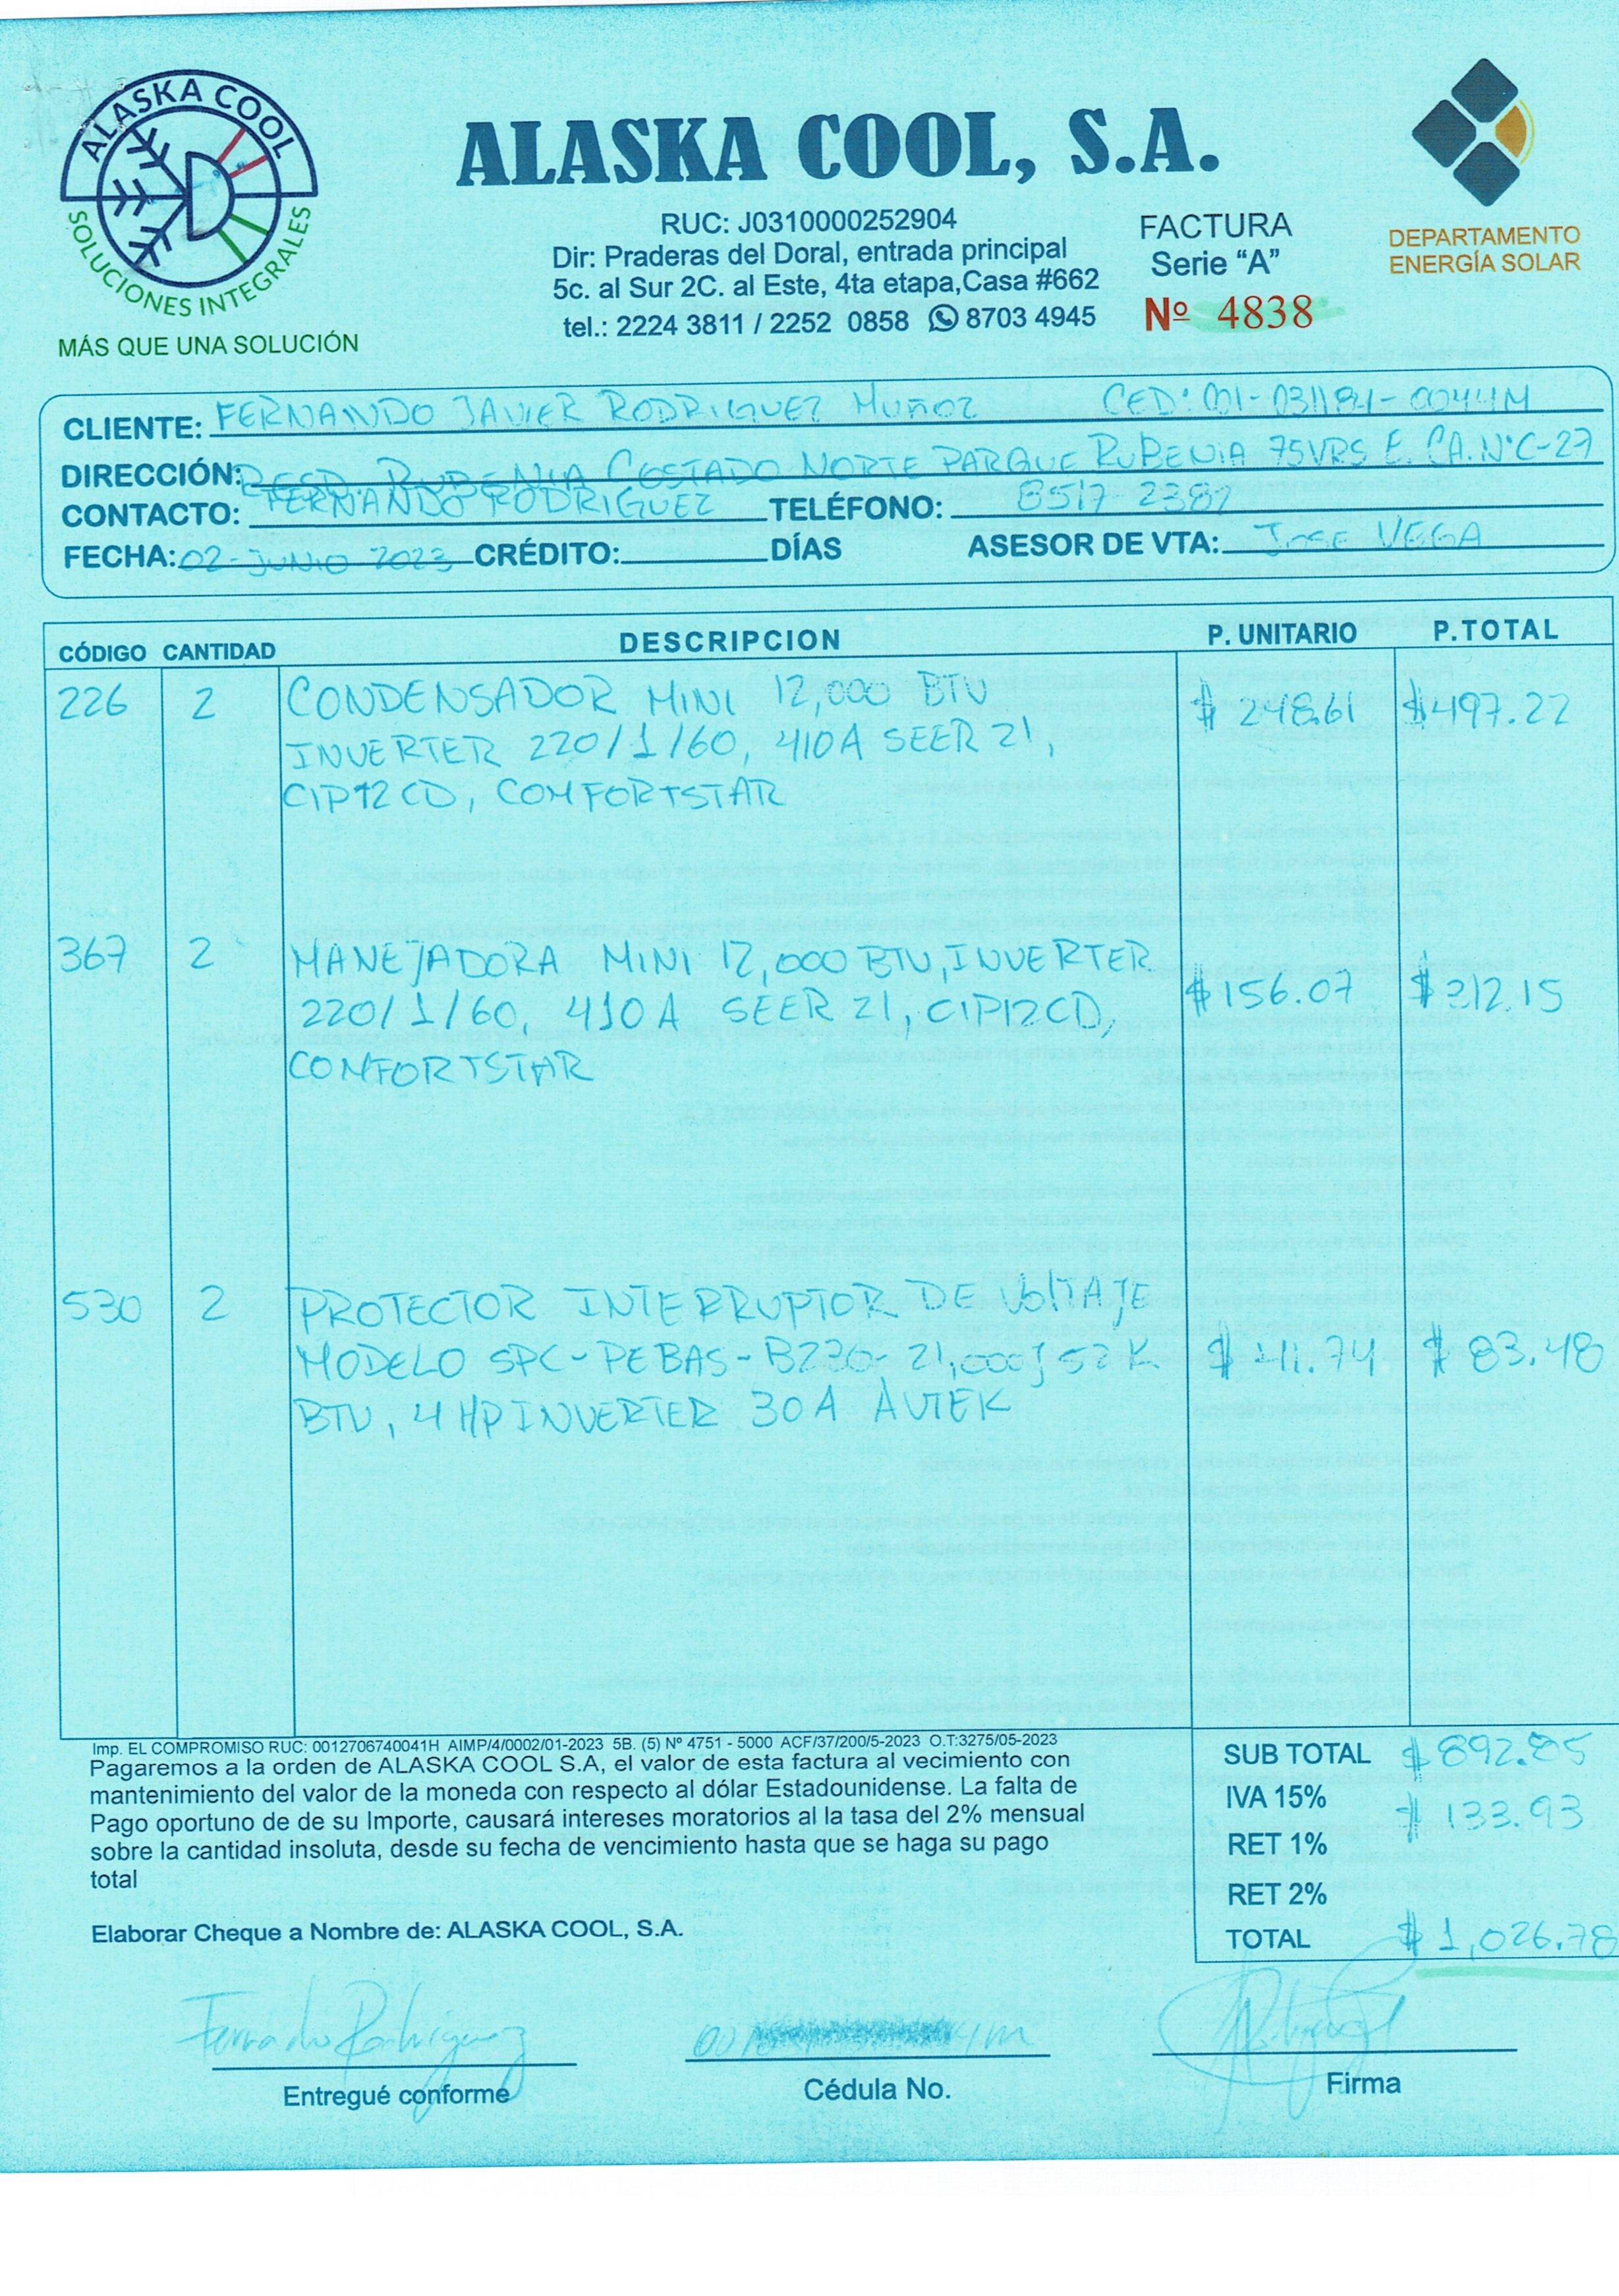 ALASKA COOL
SOLUCIONES INTEGRALES
MÁS QUE UNA SOLUCIÓN
ALASKA COOL, S.A.
RUC: J0310000252904
Dir: Praderas del Doral, entrada principal
5c. al Sur 2C. al Este, 4ta etapa,Casa #662
tel.: 2224 3811 / 2252 0858 8703 4945
FACTURA
Serie “A”
Nº 4838
DEPARTAMENTO
ENERGÍA SOLAR
CLIENTE: FERNANDO JAVIER RODRIGUEZ MUÑOZ CED: 001-031184-0044M
DIRECCIÓN: RESD. RUBENIA COSTADO NORTE PARQUE RUBENIA 75VRS E. CA. N°C-27
CONTACTO: FERNANDO RODRIGUEZ TELÉFONO: 8517 2387
FECHA: 02-JUNIO-2023 CRÉDITO: DÍAS ASESOR DE VTA: JOSE VEGA
CÓDIGO CANTIDAD DESCRIPCION P. UNITARIO P.TOTAL
226 2 CONDENSADOR MINI 12,000 BTU $ 248.61 $497.22
INVERTER 220/1/60, 410A SEER 21,
CIP12CD, COMFORTSTAR
367 2 MANEJADORA MINI 12,000 BTU, INVERTER
220/1/60, 410A SEER 21, CIP12CD, $156.07 $312.15
COMFORTSTAR
530 2 PROTECTOR INTERRUPTOR DE VOLTAJE
MODELO SPC-PEBAS-B220- 21,000J 52K $ 41.74 $ 83.48
BTU, 4 HP INVERTER 30A AVTEK
Imp. EL COMPROMISO RUC: 0012706740041H AIMP/4/0002/01-2023 5B. (5) Nº 4751 - 5000 ACF/37/200/5-2023 O.T:3275/05-2023
Pagaremos a la orden de ALASKA COOL S.A, el valor de esta factura al vecimiento con
mantenimiento del valor de la moneda con respecto al dólar Estadounidense. La falta de
Pago oportuno de de su Importe, causará intereses moratorios al la tasa del 2% mensual
sobre la cantidad insoluta, desde su fecha de vencimiento hasta que se haga su pago
total
Elaborar Cheque a Nombre de: ALASKA COOL, S.A.
SUB TOTAL $892.85
IVA 15% $ 133.93
RET 1%
RET 2%
TOTAL $1,026.78
Fernando Rodriguez
Entregué conforme
Cédula No.
Firma